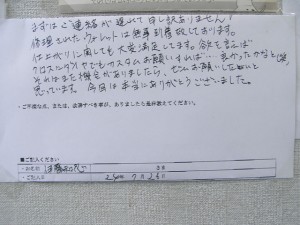 まずはご連絡が遅れて申し訳ありません!
修理されたウォレットは無事到着致しております。
仕上がりに関しても大変満足してます。欲を言えば
クロスとダイヤでもカスタムお願いすれば… 良かったかなと(笑)
それはまた機会がありましたら、ぜひお願いしたいと
思っています。今回は本当にありがとうございました。
・ご不満な点、または、改善すべき事が、ありましたら是非教えてください。
■ご記入ください
・お名前 様
・ご記入日